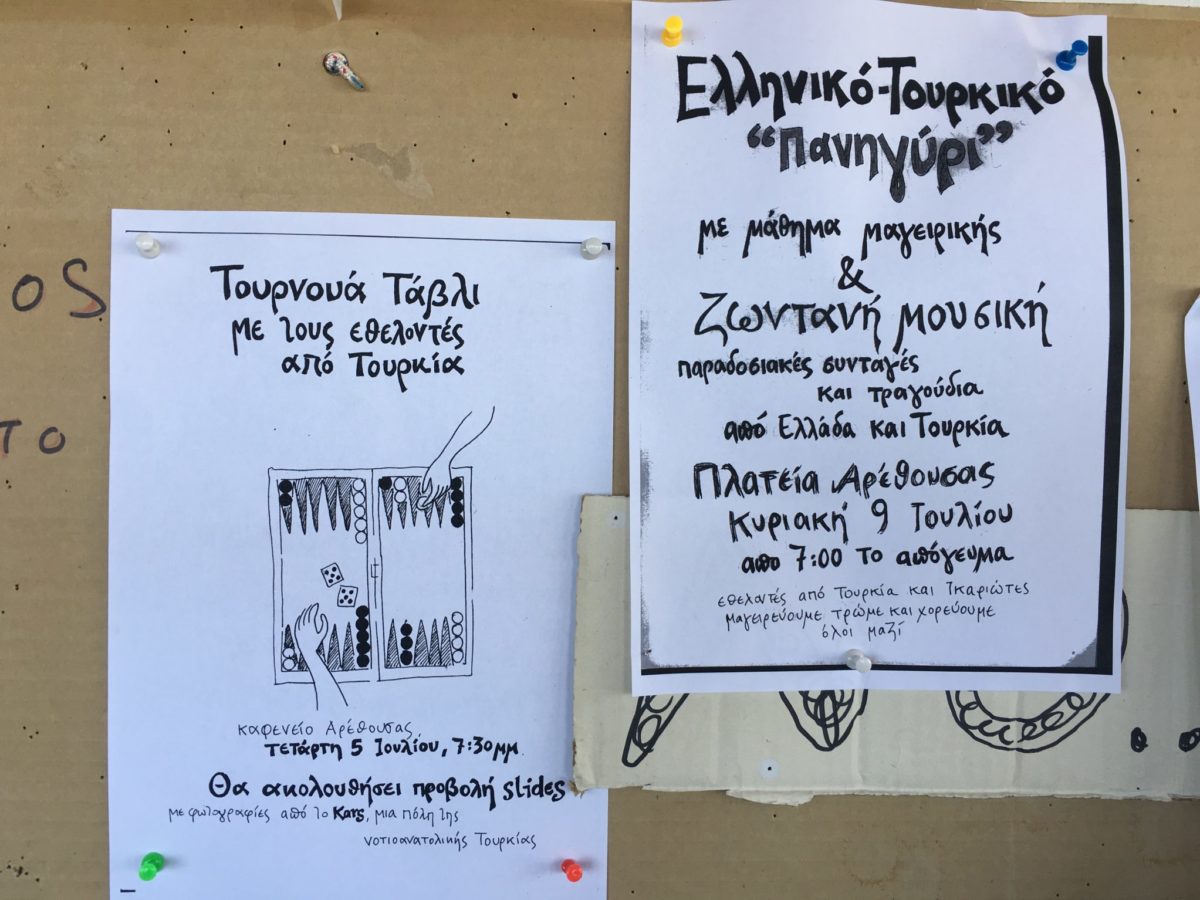 Τουρνουά Τάβλι
με τους εθελοντές
από Τουρκία
καφενείο Αρέθουσας,
τετάρτη 5 Ιουλίου, 7:30μμ.
Θα ακολουθήσει προβολή slides
με φωτογραφίες από το Kars, μια πόλη της
νοτιοανατολικής Τουρκίας
Ελληνικό-Τουρκικό
“Πανηγύρι”
με μάθημα μαγειρικής
&
ζωντανή μουσική
παραδοσιακές συνταγές
και τραγούδια
από Ελλάδα και Τουρκία
Πλατεία Αρέθουσας
Κυριακή 9 Ιουλίου
απο 7:00 το απόγευμα
εθελοντές από Τουρκία και Ικαριώτες
μαγειρεύουμε τρώμε και χορεύουμε
όλοι μαζί
os
το